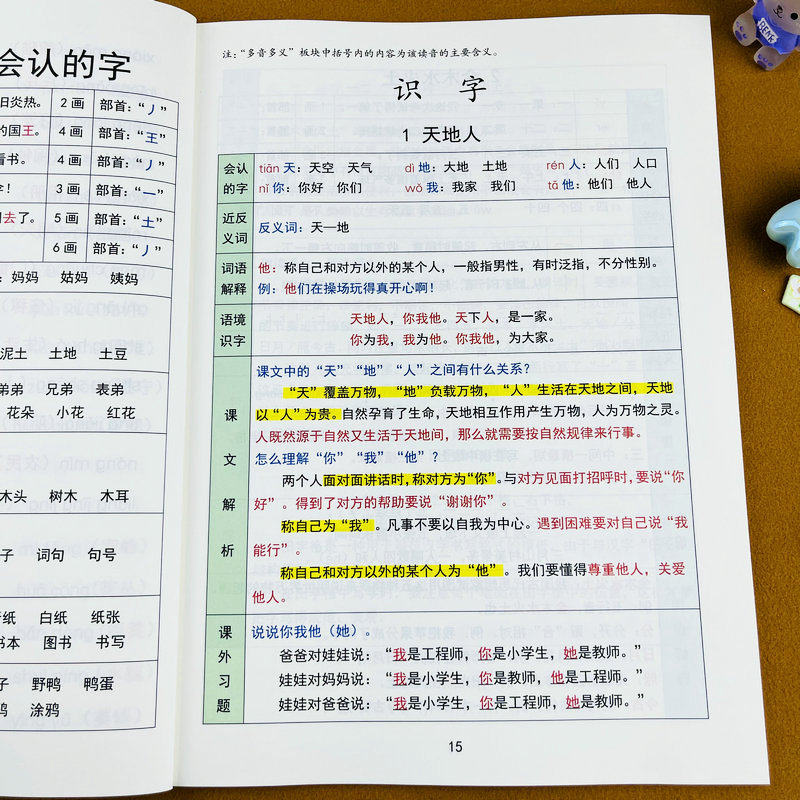 会认的字
旧炎热。 2画 部首：“丿”
的国王。 4画 部首：“王”
看书。 4画 部首：“丿”
！ 3画 部首：“一”
去了。 5画 部首：“土”
6画 部首：“丿”
：妈妈 姑妈 姨妈
泥土 土地 土豆
弟弟 兄弟 表弟
花朵 小花 红花
木头 树木 木耳
子 词句 句号
纸 白纸 纸张
书本 图书 书写
子 野鸭 鸭蛋
鸦 涂鸦
注：“多音多义”板块中括号内的内容为该读音的主要含义。
识 字
1 天地人
会认的字
tiān 天：天空 天气 dì 地：大地 土地 rén 人：人们 人口
nǐ 你：你好 你们 wǒ 我：我家 我们 tā 他：他们 他人
近反义词
反义词：天—地
词语解释
他：称自己和对方以外的某个人，一般指男性，有时泛指，不分性别。
例：他们在操场玩得真开心啊！
语境识字
天地人，你我他。天下人，是一家。
你为我，我为他。你我他，为大家。
课文解析
课文中的“天”“地”“人”之间有什么关系？
“天”覆盖万物，“地”负载万物，“人”生活在天地之间，天地
以“人”为贵。自然孕育了生命，天地相互作用产生万物，人为万物之灵。
人既然源于自然又生活于天地间，那么就需要按自然规律来行事。
怎么理解“你”“我”“他”？
两个人面对面讲话时，称对方为“你”。与对方见面打招呼时，要说“你
好”。得到了对方的帮助要说“谢谢你”。
称自己为“我”。凡事不要以自我为中心。遇到困难要对自己说“我
能行”。
称自己和对方以外的某个人为“他”。我们要懂得尊重他人，关爱
他人。
课外习题
说说你我他（她）。
爸爸对娃娃说：“我是工程师，你是小学生，她是教师。”
娃娃对妈妈说：“我是小学生，你是教师，他是工程师。”
娃娃对爸爸说：“我是小学生，你是工程师，她是教师。”
15